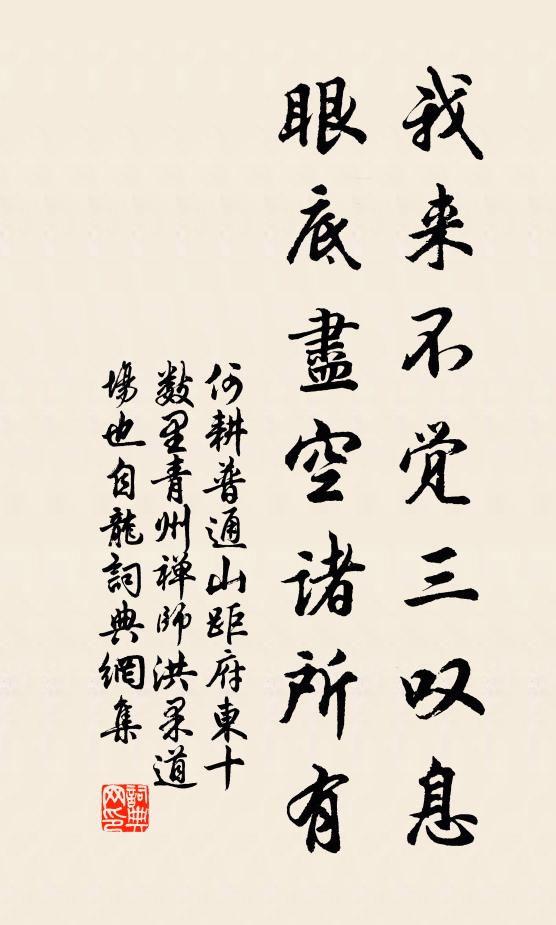 我来不觉三叹息
眼底盡空諸所有
何耕普通山距府東十
数里青州禅師洪杲道
場也自龍詞典網集
詞典
网印